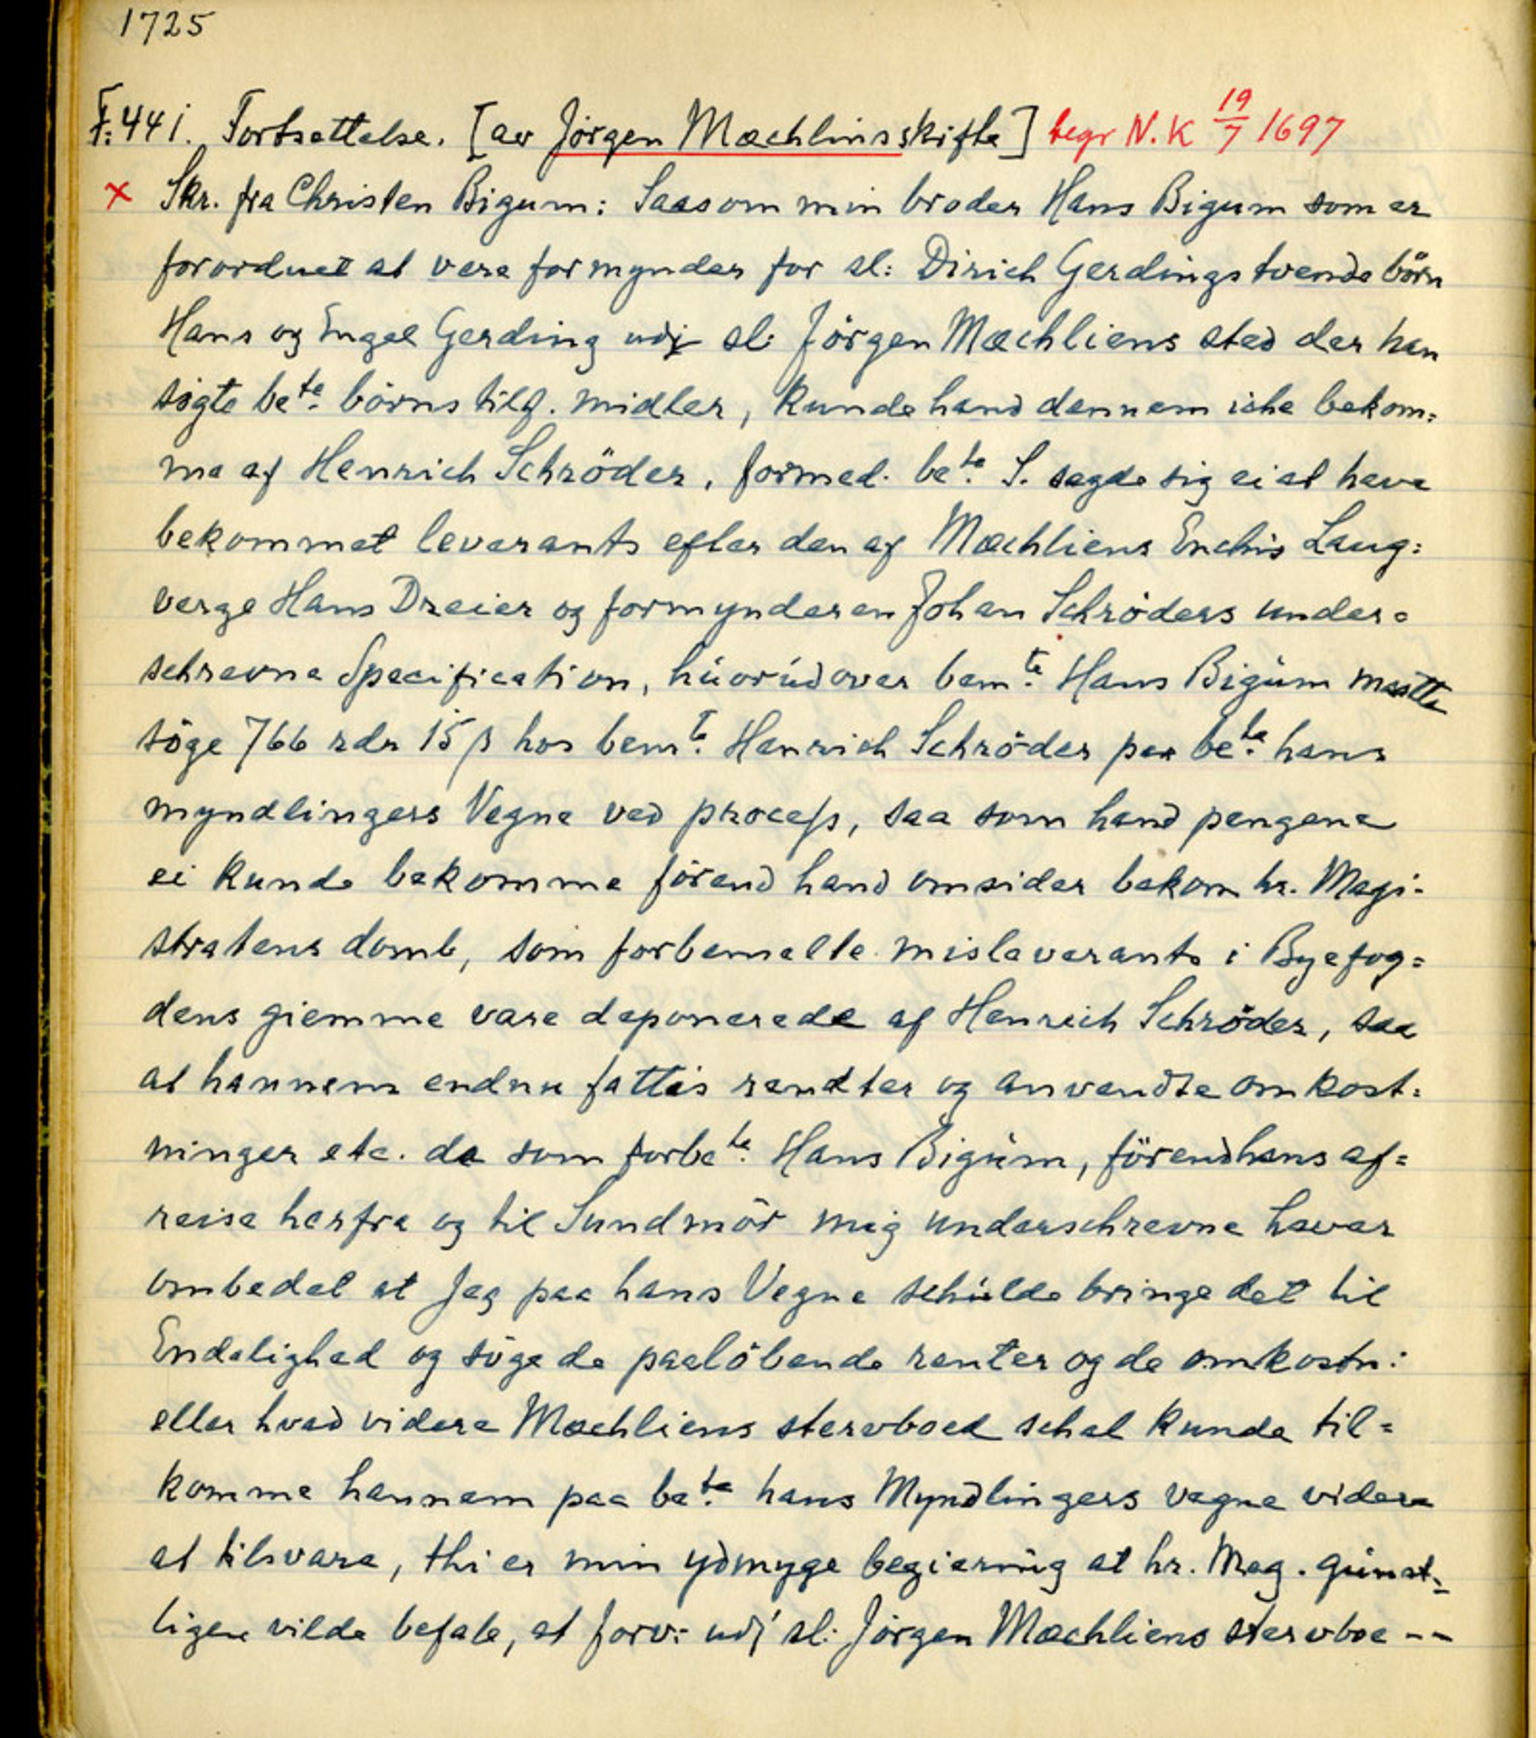 1725
F: 441. Fortsettelse. [av Jörgen Mæchlins skifte] begr N.K 19/7 1697
x Skr. fra Christen Bigum: Saasom min broder Hans Bigum som er
forordnet at vere formynder for sl: Dirich Gerdings tvende börn
Hans og Engel Gerding udj sl: Jörgen Mæchliens sted der han
sögte bete. börns tilf. midler, kunde hand dennem iche bekom:
me af Henrich Schröder, formed. bete. S. sagde sig ei at have
bekommet leverants efter den af Mæchliens Enchis Laug:
verge Hans Dreier og formynderen Johan Schröders under=
schrevne Specification, húorúdover bemte. Hans Bigúm maatte
söge 766 rdr 15 β hos bemte. Henrich Schröder paa bete. hans
myndlingers Vegne ved process, saa som hand pengene
ei kunde bekomme förend hand omsider bekom hr. Magi-
stratens domb, som forbemelte misleverants i Byefog=
dens giemme vare deponerede af Henrich Schröder, saa
at hannem endnu fattis rendter og anvendte omkost:
ninger etc. da som forbete. Hans Bigúm, förend hans af=
reise herfra og til Sundmör mig underschrevne haver
ombedet at Jeg paa hans Vegne schúlde bringe det til
Endelighed og söge de paalöbende renter og de omkostn:
eller hvad videre Mæchliens stervboed schal kunde til=
komme hannem paa bete. hans Myndlingers vegne videre
at tilsvare, thi er min ydmyge begiering at hr. Mag. gúnst=
ligen vilde befale, at forv: udj sl: Jörgen Mæchliens stervboe --